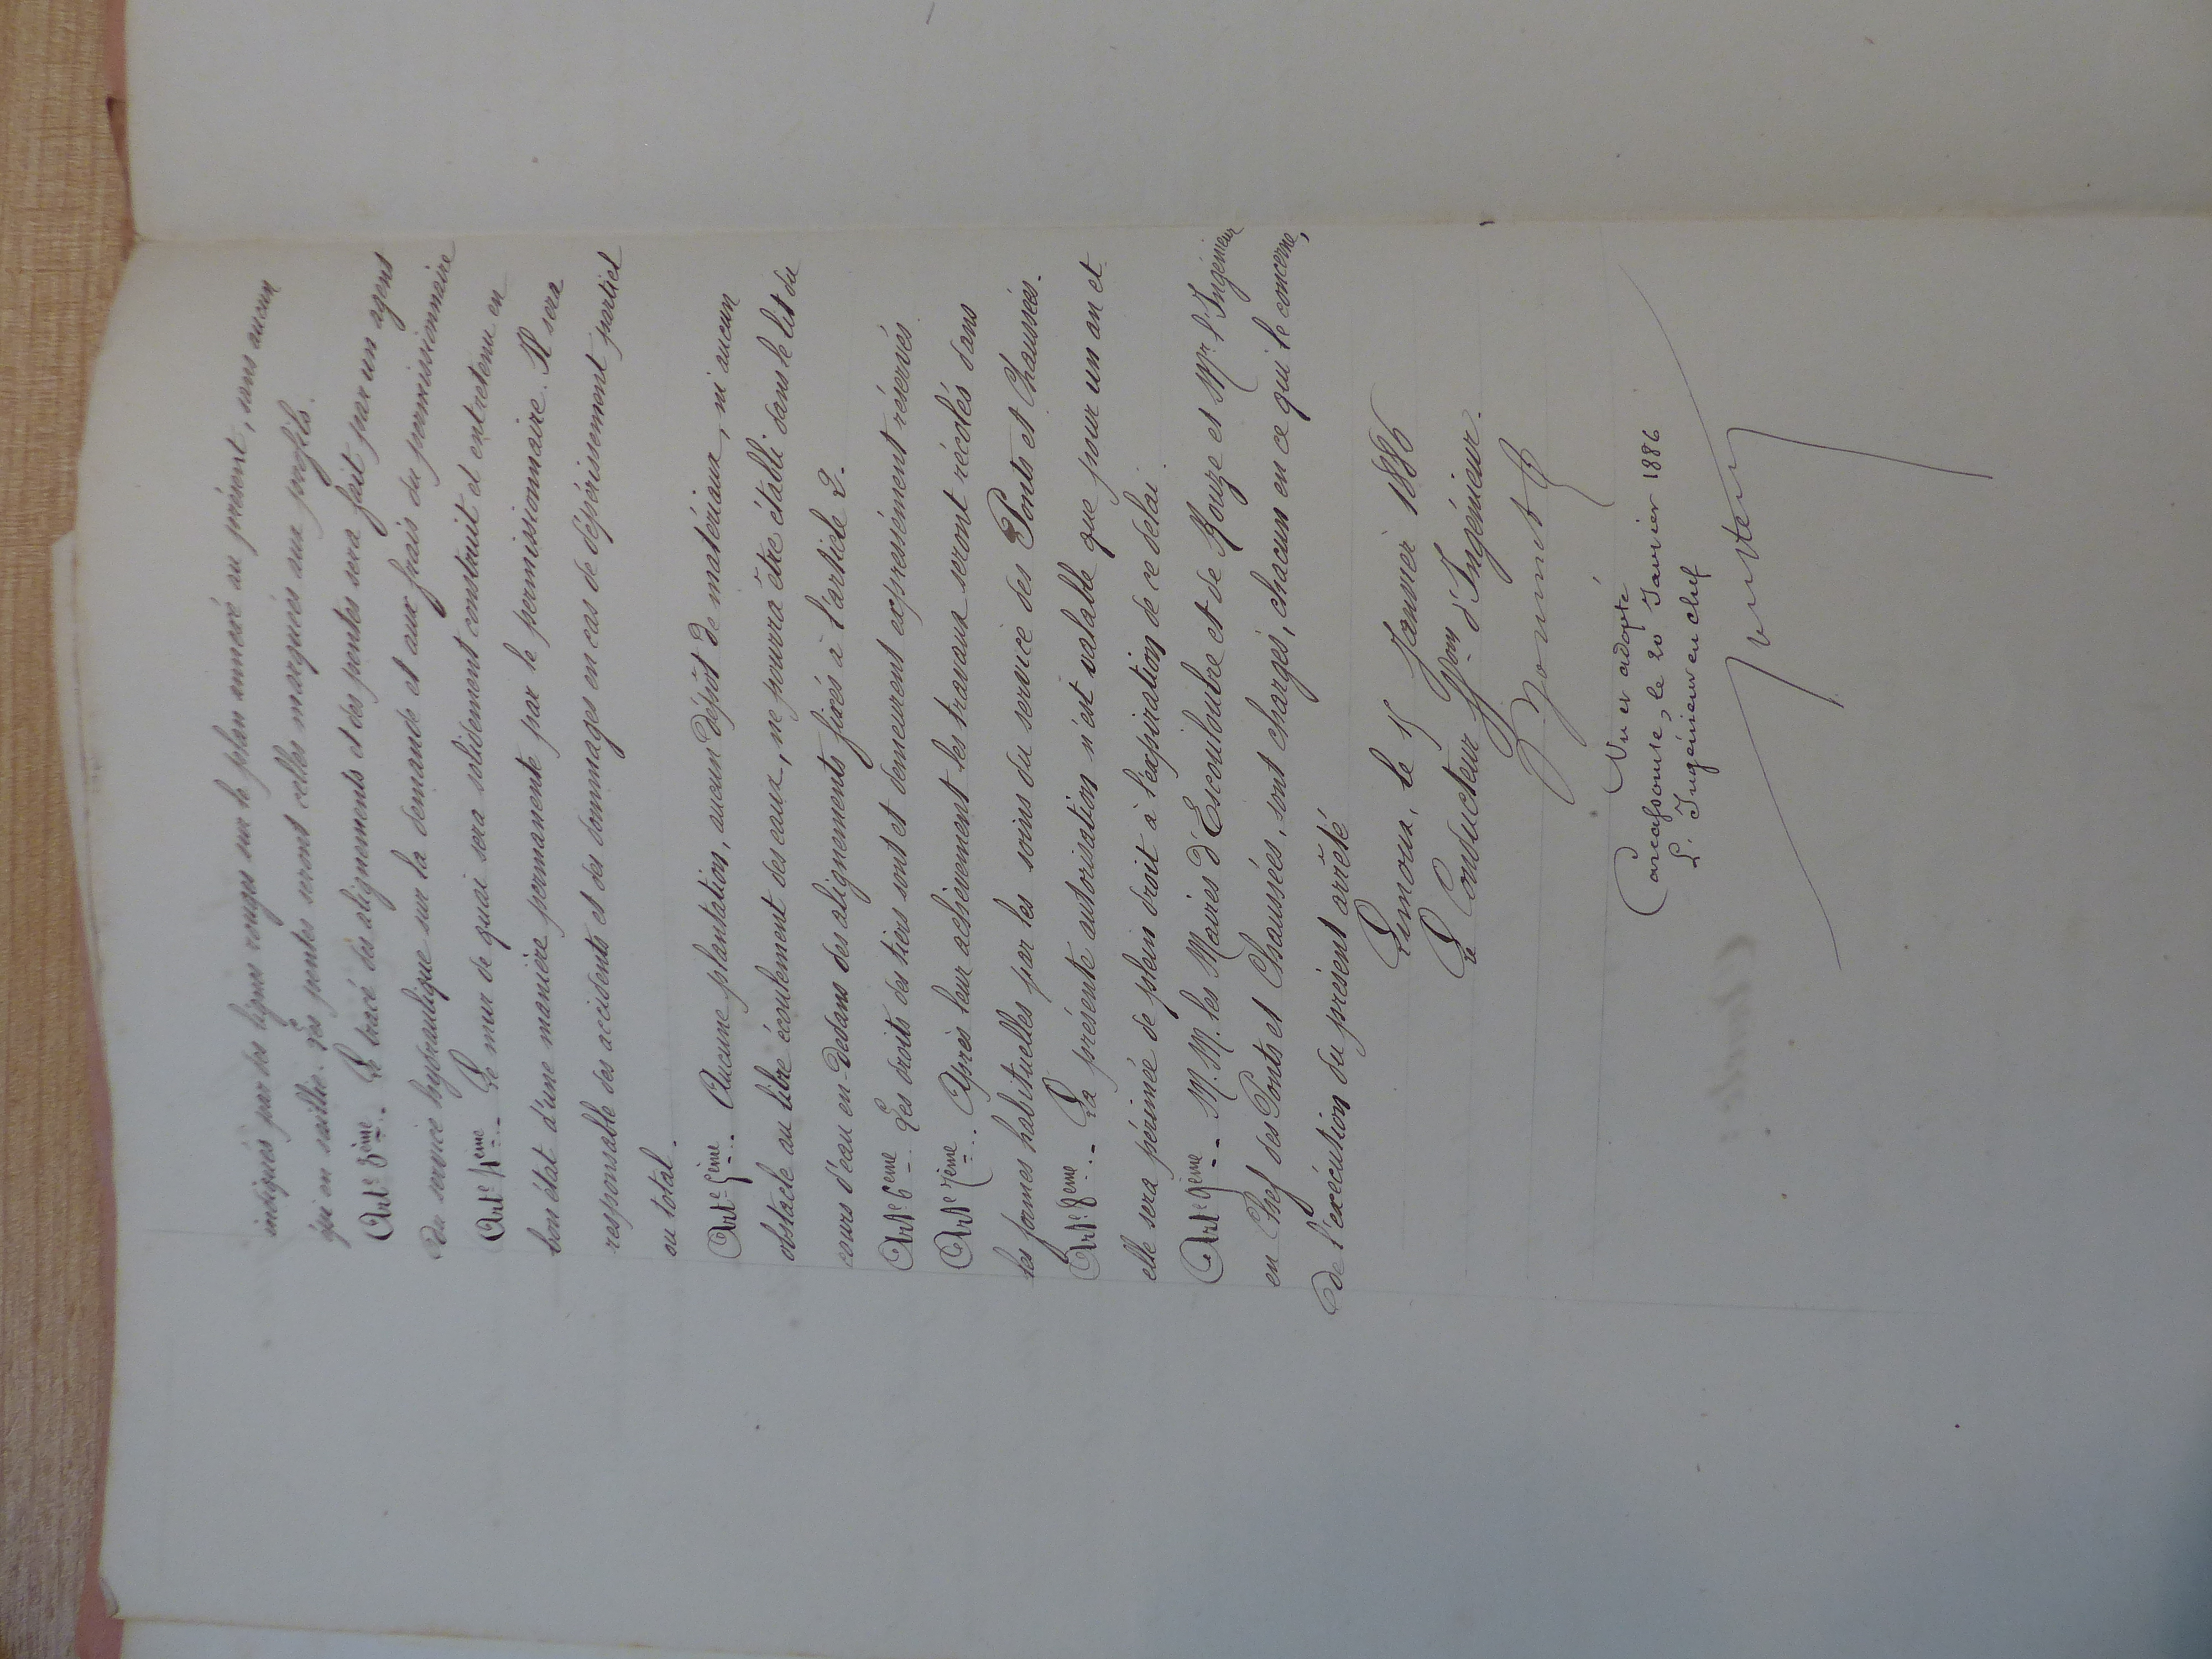 indiqués par des lignes rouges sur le plan annexé au présent, sans aucun
qui en saillie. Les pentes seront celles marquées aux profils.
Art.e 3ème.- Le tracé des alignements et des pentes sera fait par un agent
du service hydraulique sur la demande et aux frais du permissionnaire
Art.e 4ème.- Le mur de quai sera solidement construit et entretenu en
bon état d'une manière permanente par le permissionnaire. Il sera
responsable des accidents et des dommages en cas de dépérissement partiel
ou total.
Art.e 5ème.- Aucune plantation, aucun dépôt de matériaux, ni aucun
obstacle au libre écoulement des eaux, ne pourra être établi dans le lit du
cours d'eau en-dedans des alignements fixés à l'article 2.
Art.e 6ème.- Les droits des tiers sont et demeurent expressément réservés
Art.e 7ème.- Après leur achèvement les travaux seront récolés dans
les formes habituelles par les soins du service des Ponts et Chaussées.
Art.e 8ème.- La présente autorisation n'est valable que pour un an et
elle sera périmée de plein droit à l'expiration de ce délai.
Art.e 9ème.- M.M. les Maires d'Escouloubre et de Rouze et Mr. l'Ingénieur
en Chef des Ponts et Chaussées, sont chargés, chacun en ce qui le concerne,
de l'exécution du présent arrêté
Limoux, le 15 Janvier 1886
Le Conducteur ffons d'Ingénieur.
Vu et adopté
Carcassonne, le 20 Janvier 1886
L'Ingénieur en chef